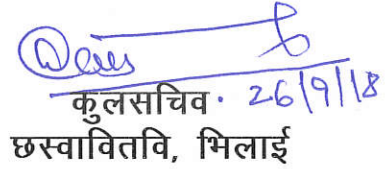 कुलसचिव. 26/9/18
छस्वावितवि, भिलाई